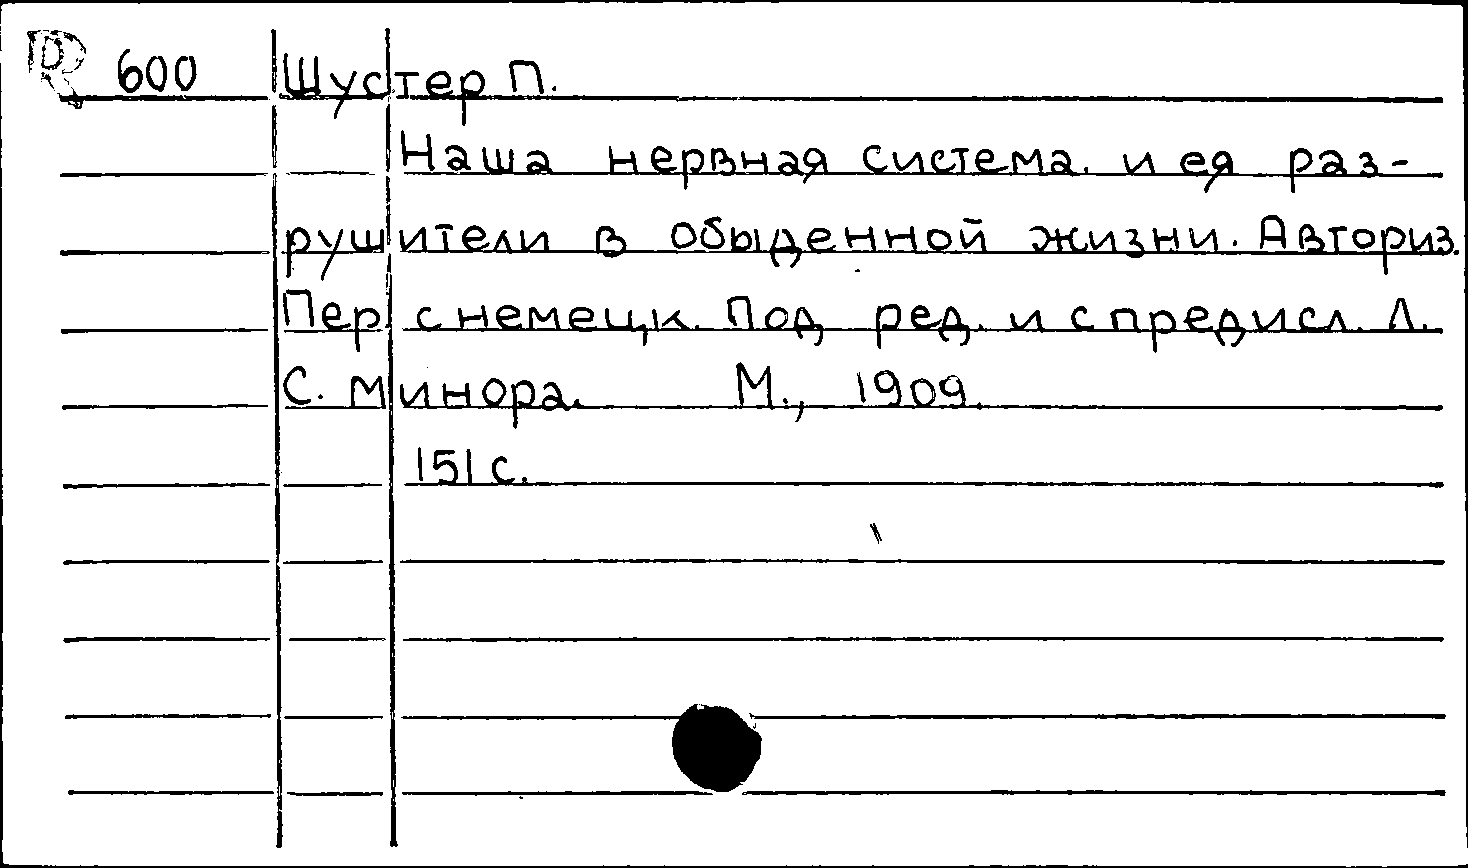 R 600 Шустер П.
Наша нервная система и ея раз-
рушители в обыденной жизни. Авториз.
Пер. с немецк. Под ред. и с предисл. Л.
С. Минора. М., 1909.
151 с.